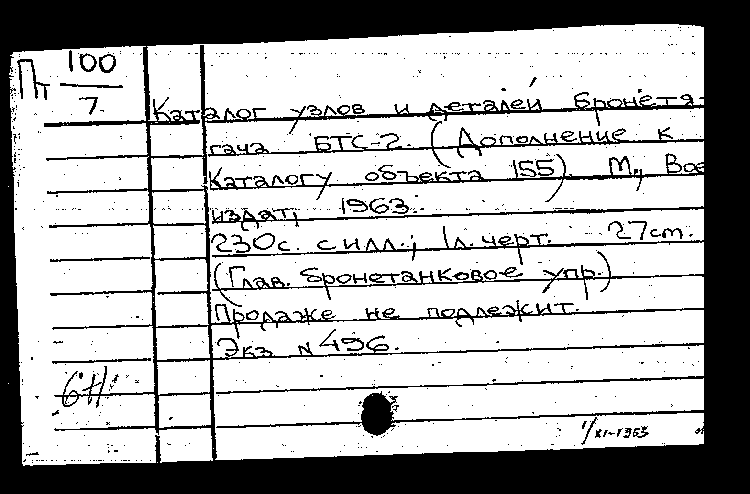 Пт 100
7
Каталог узлов и деталей бронетя-
гача БТС-2. (Дополнение к
Каталогу объекта 155). М., Вое
издат, 1963.
230с. с илл.; 1л. черт. 27cm.
(Глав. бронетанковое упр.)
Продаже не подлежит.
Экз N 496.
1/XI-1963